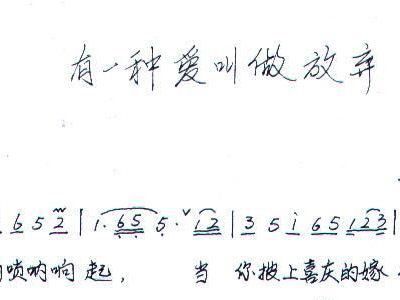 有一种爱叫做放弃
6 5 2 | 1· 6 5 5· ˅ 1 2 | 3 5 i 6 5 1 2 3 |
唢呐响起， 当 你披上喜庆的嫁